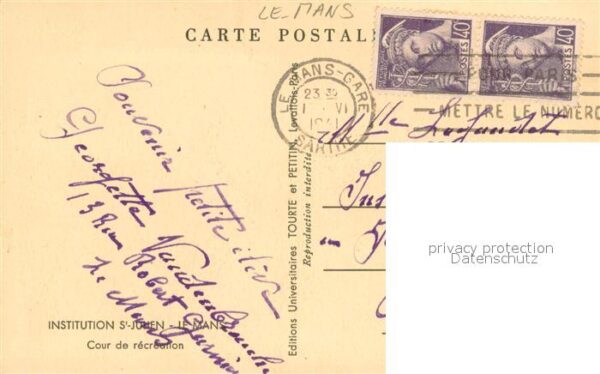 LE-MANS
CARTE POSTALE
POSTES 40
POSTES 40
LE MANS-GARE
23
1 VI
1941
SARTHE
POUR PARIS
METTRE LE NUMÉRO
Mlle
Souvenir
Petite élève
Georgette
13 Rue Robert Garnier
Le Mans
Editions Universitaires TOURTE et PETITIN, Levallois-Paris
Reproduction interdite
INSTITUTION St-JULIEN - LE MANS
Cour de récréation
privacy protection
Datenschutz